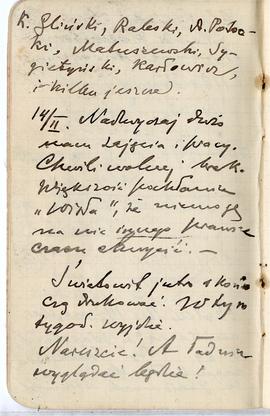 K. Gliński, Raleski, A. Potoc-
ki, Matuszewski, Sy-
gietyński, Karłowicz,
i kilku jeszcze.
14/II. Nadzwyczaj dużo
mam zajęcia i pracy.
Chwili wolnej brak.
większość pochłania
„Wisła", że nie mogę
na nic innego prawie
czasu chwycić. —
Światowit jutro skoń-
czą drukować. W tym
tygod. wyjdzie.
Nareszcie! A Tadzio
wyglądać będzie!